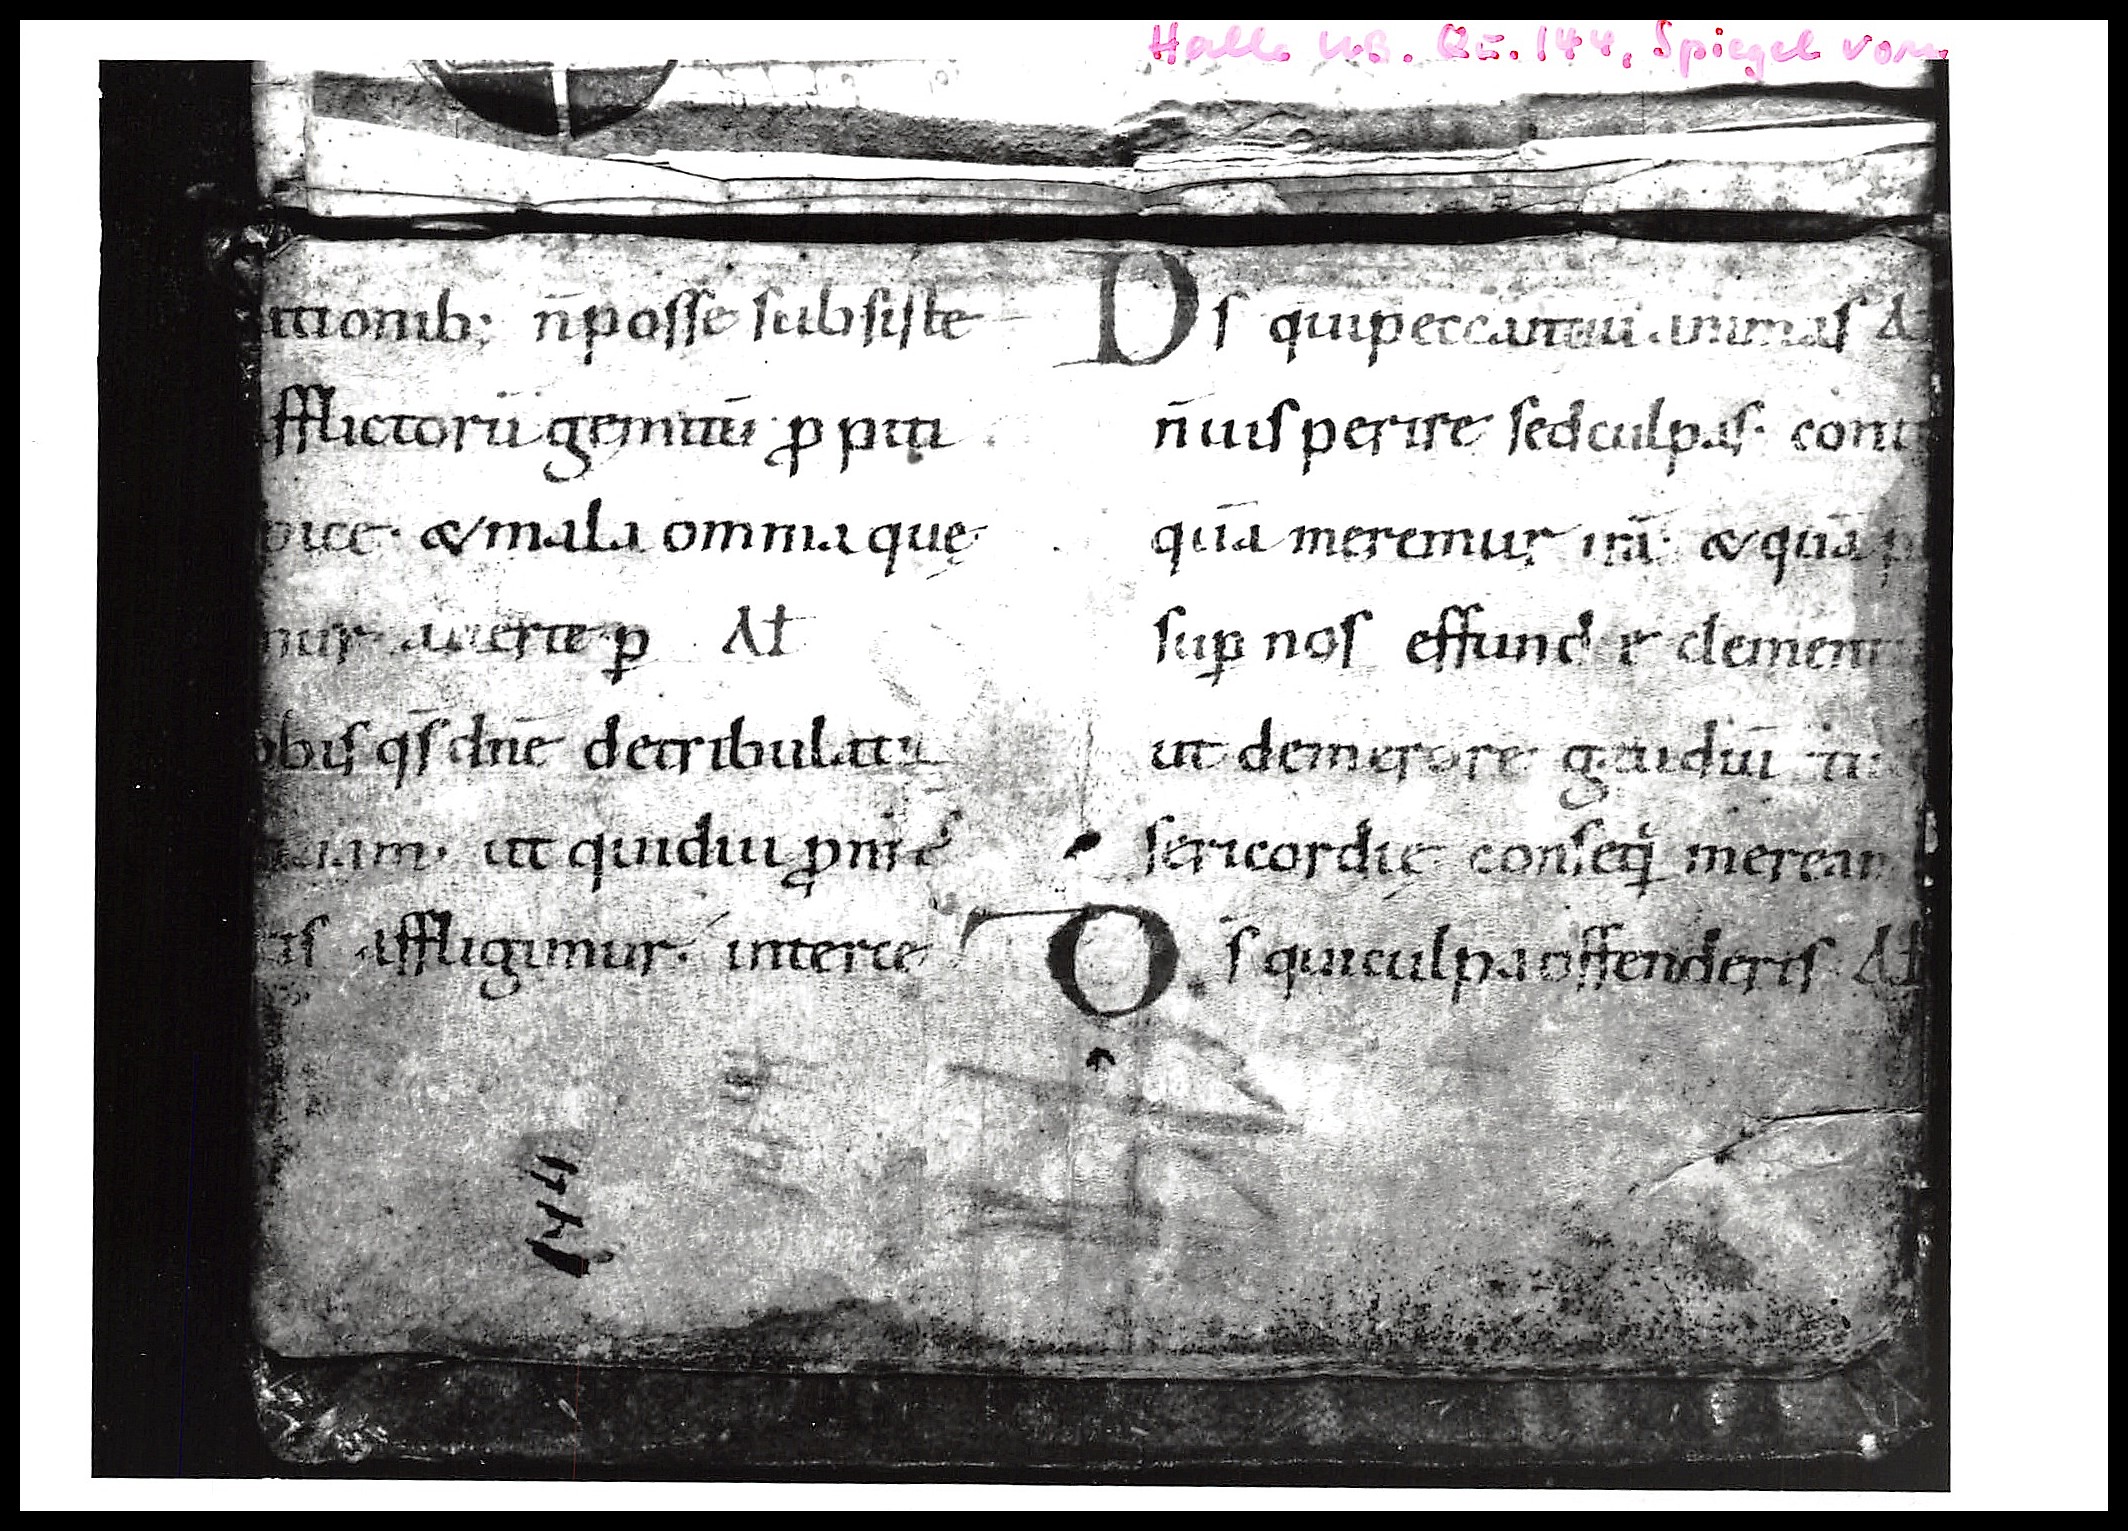 Halle UB. Qu. 144, Spiegel vorn
itionib; n̄ posse subsiste
fflictorū gemitū ꝓpiti
pice · & mala omnia quę
mur auerte p̱ Al̄
obis qs̄ dn̄e detribulati
ut quidiu ꝓ nr̄is
affligimur · interce
D̄s qui peccantiū animas Al̄
n̄ uis perire sed culpas · conti
quā meremur irā · & quā p
sup̱ nos effunde clement
ut demerore gaudiū tu
sericordie consequi merean
D̄s qui culpa offenderis Al̄
144